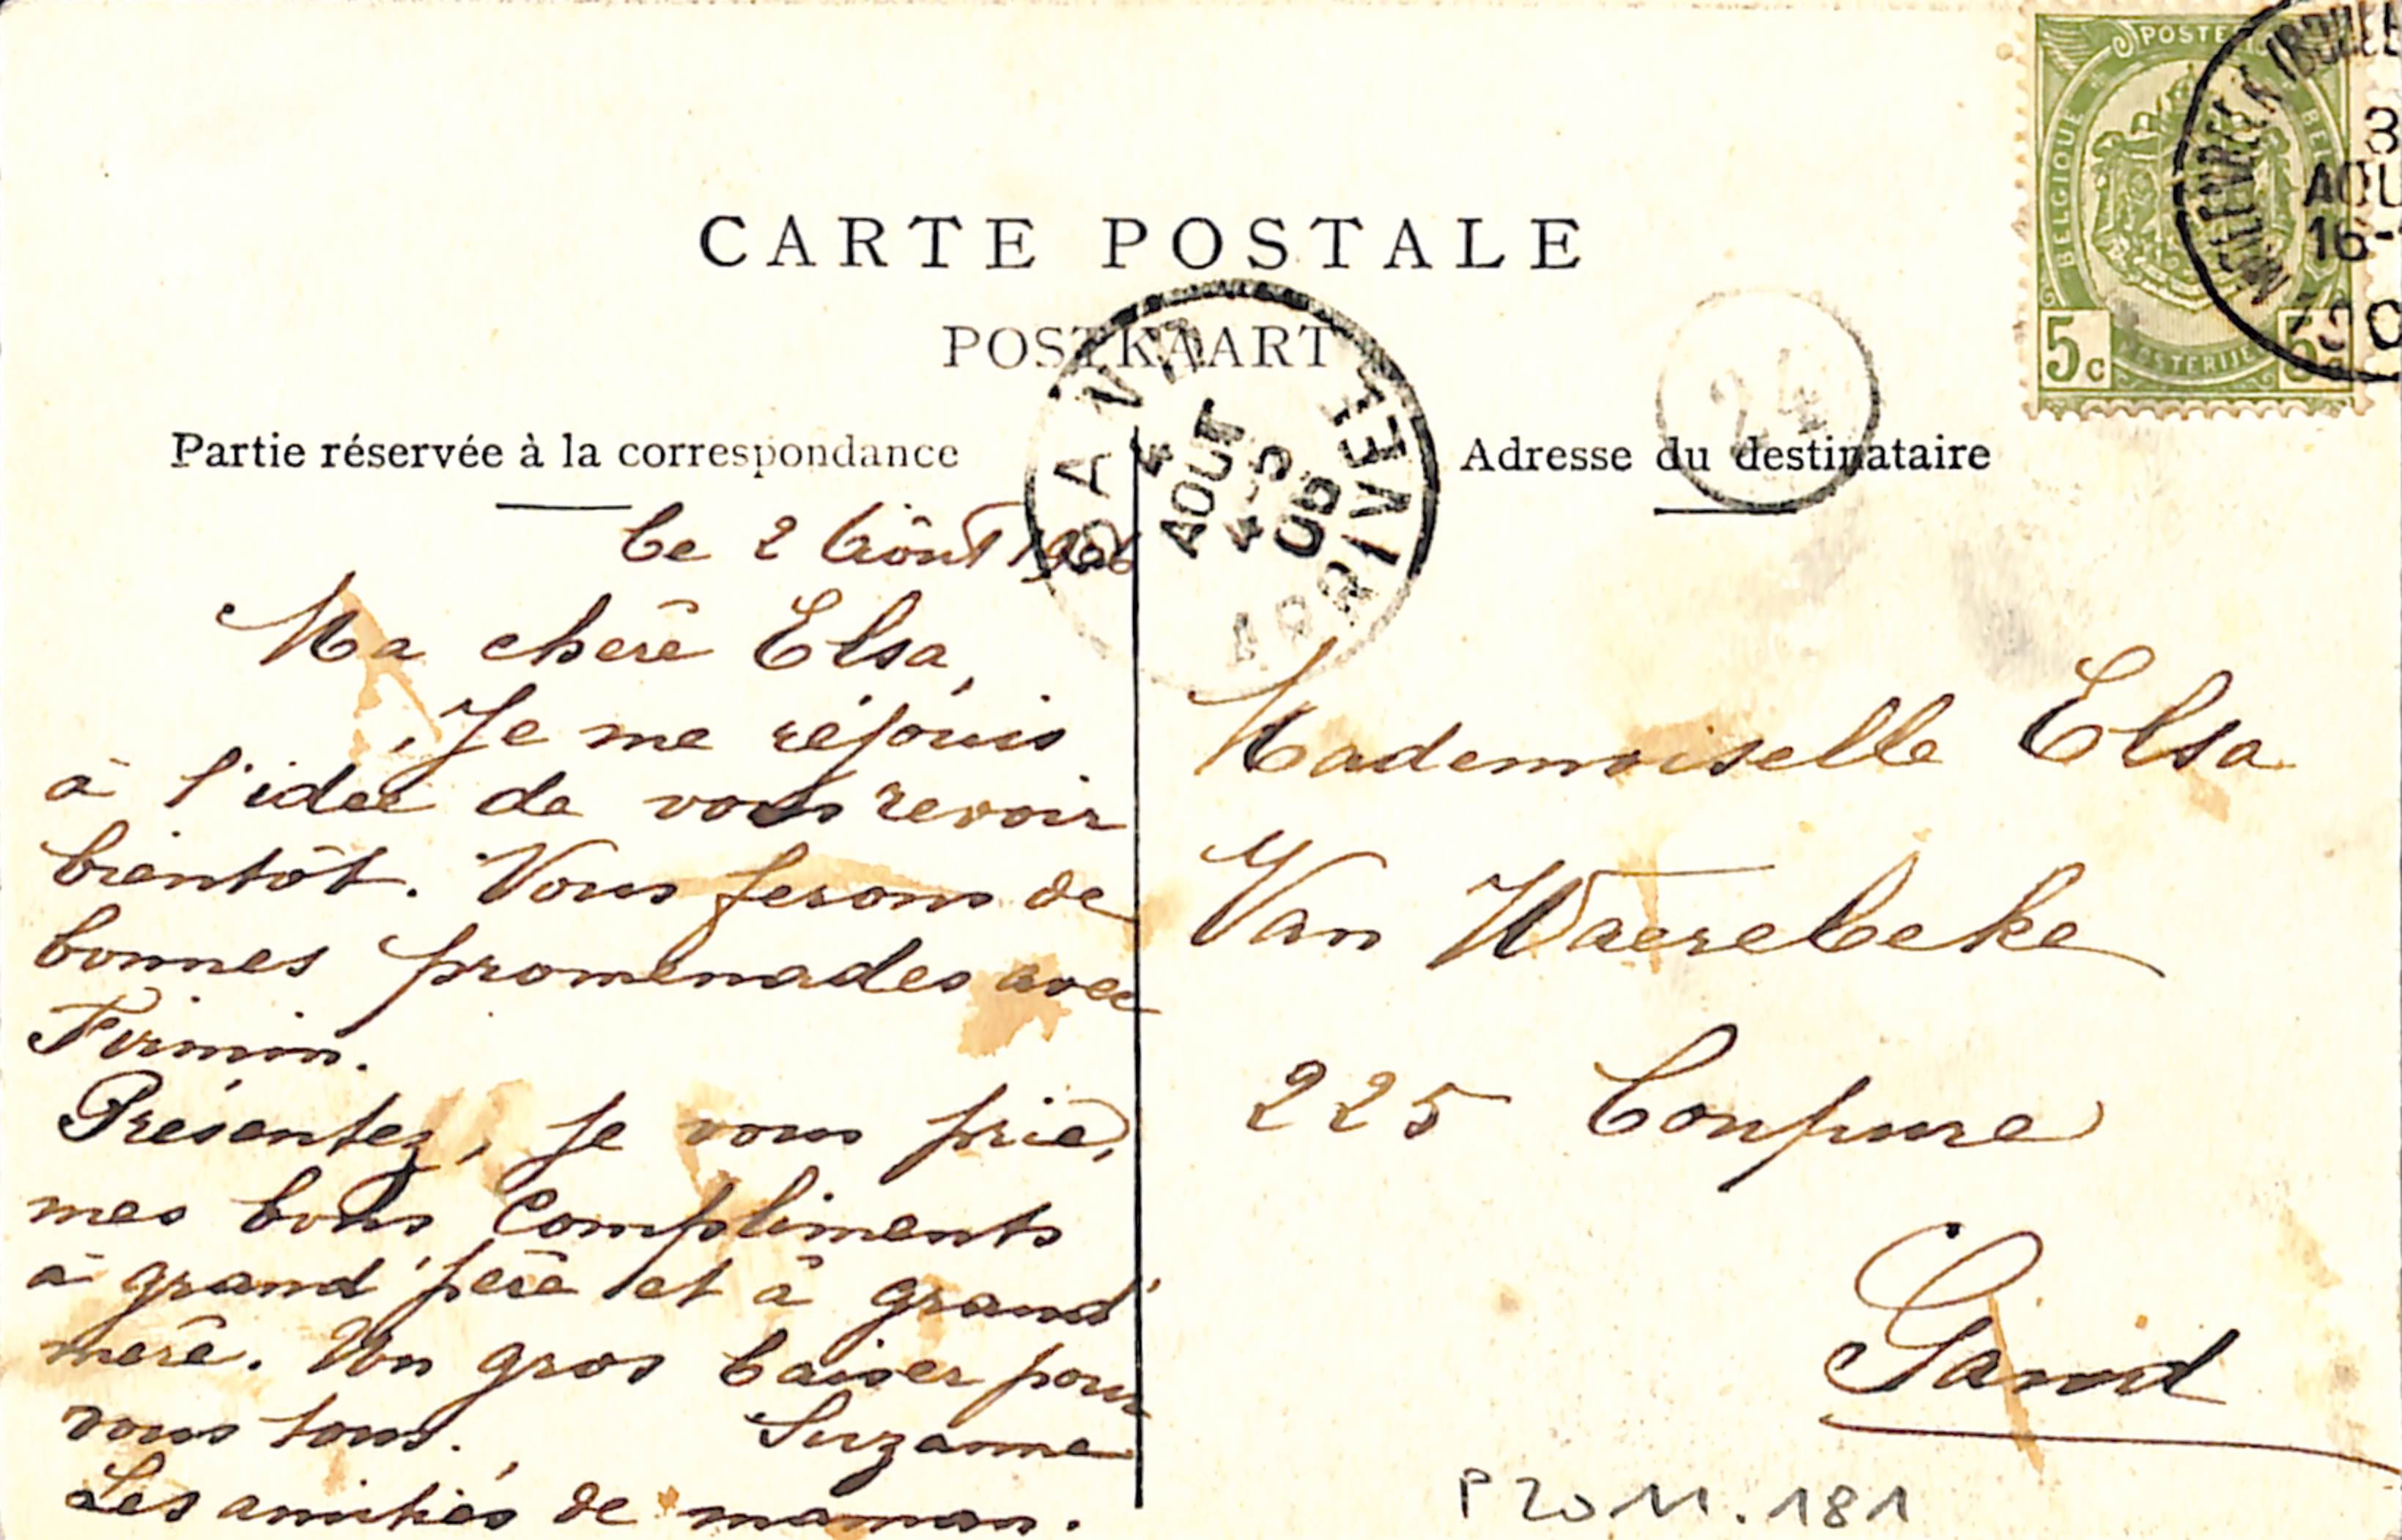 CARTE POSTALE
POSTKAART
Partie réservée à la correspondance
Adresse du destinataire
POSTE
BELGIQUE
BEL
POSTERIJE
5c
5c
3
AOU
16-
GAND
4
AOUT
4-5
06
ARRIVEE
24
Le 2 Août 1906
Ma chère Elsa,
Je me réjouis
à l'idée de vous revoir
bientôt. Nous ferons de
bonnes promenades avec
Firmin.
Présentez, je vous prie,
mes bons compliments
à grand'père et à grand'
mère. Un gros baiser pour
vous tous. Suzanne
Les amitiés de maman.
Mademoiselle Elsa
Van Waerebeke
225 Coupure
Gand
P2011.181